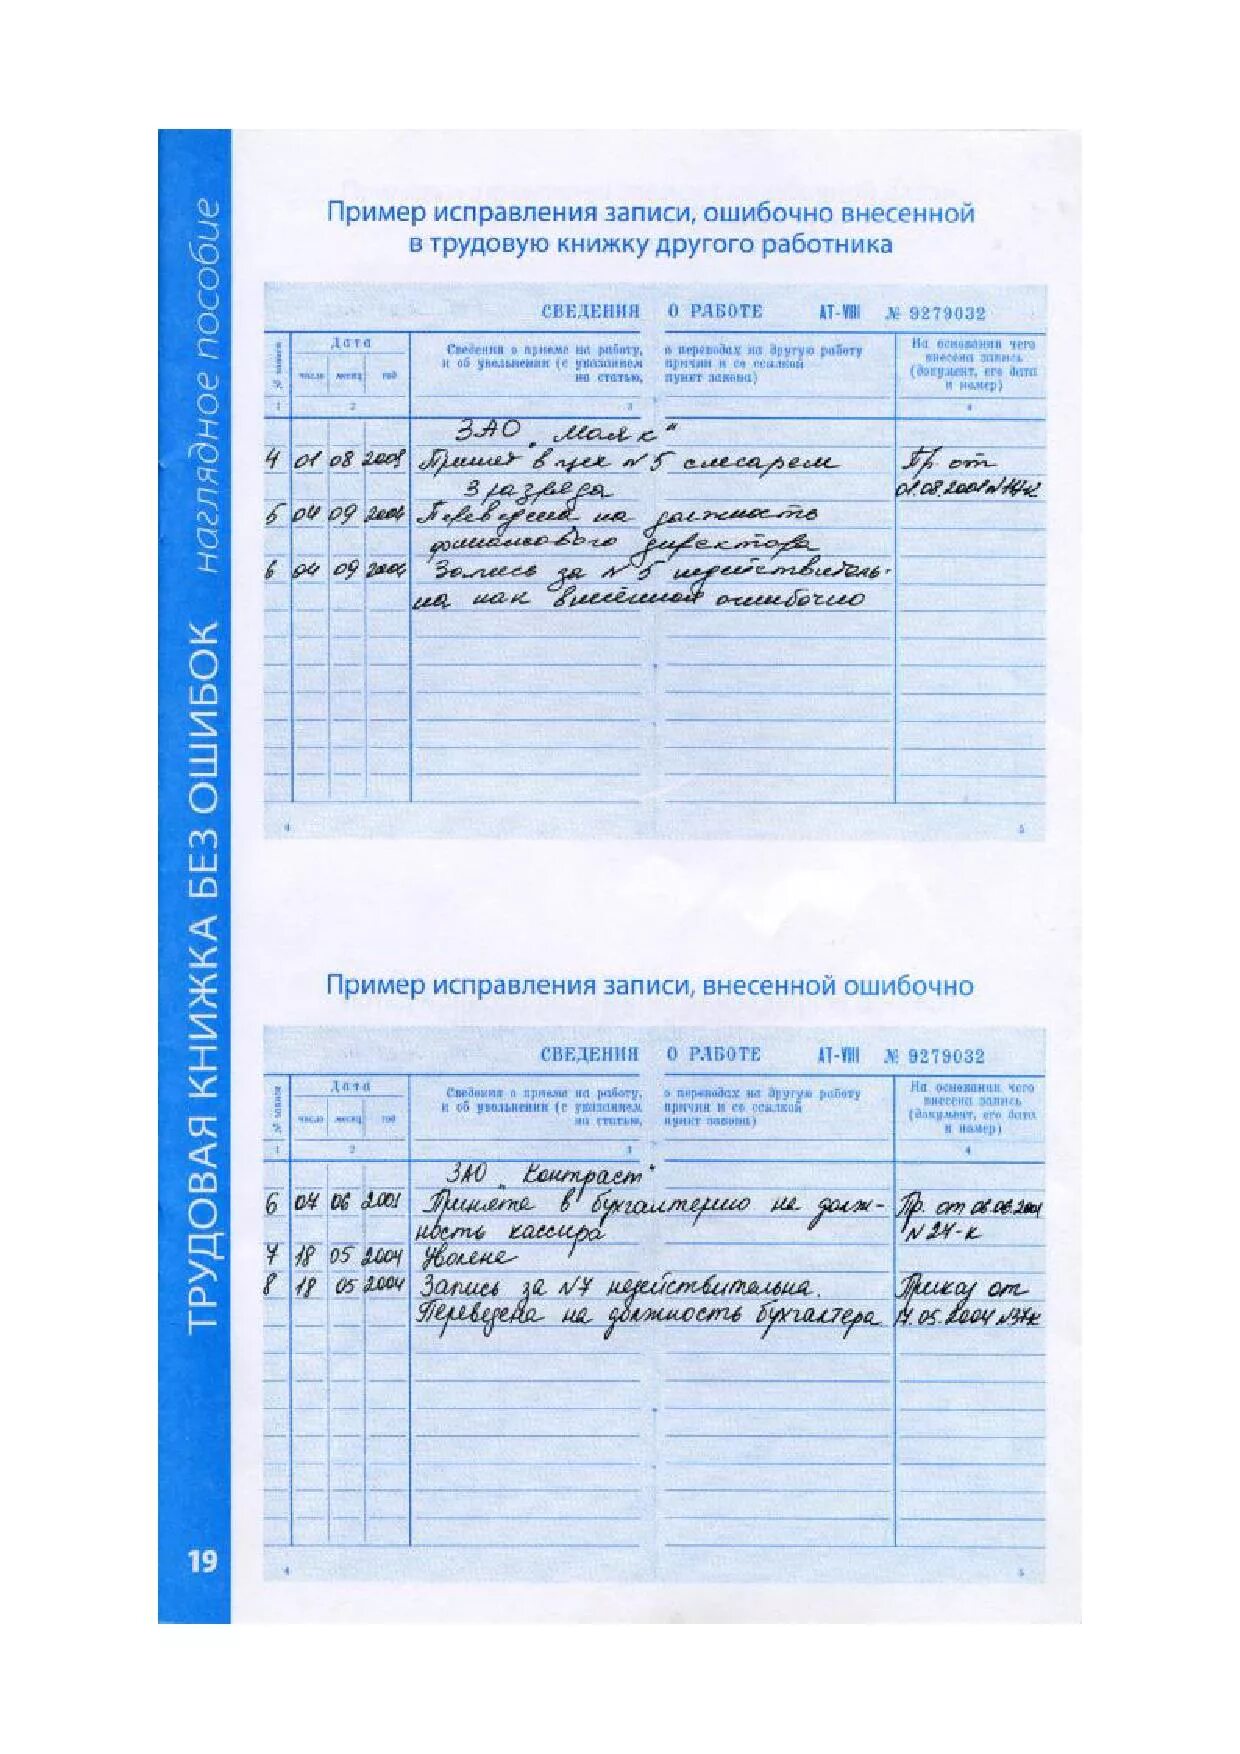 ТРУДОВАЯ КНИЖКА БЕЗ ОШИБОК наглядное пособие
Пример исправления записи, ошибочно внесенной
в трудовую книжку другого работника
СВЕДЕНИЯ О РАБОТЕ АТ-VIII № 9279032
№ записи
Дата
число месяц год
Сведения о приеме на работу, о переводах на другую работу
и об увольнении (с указанием причин и со ссылкой
на статью, пункт закона)
На основании чего
внесена запись
(документ, его дата
и номер)
1 2 3 4
ЗАО „Маяк"
4 01 08 Принят в цех №5 слесарем Пр. от
3 разряда
5 04 09 2004 Переведена на должность
финансового директора
6 04 09 2004 Запись за №5 недействитель-
на как внесённая ошибочно
4 5
Пример исправления записи, внесенной ошибочно
СВЕДЕНИЯ О РАБОТЕ АТ-VIII № 9279032
№ записи
Дата
число месяц год
Сведения о приеме на работу, о переводах на другую работу
и об увольнении (с указанием причин и со ссылкой
на статью, пункт закона)
На основании чего
внесена запись
(документ, его дата
и номер)
1 2 3 4
ЗАО „Контраст"
6 07 06 Принята в бухгалтерию на долж- Пр. от
ность кассира №24-к
7 18 05 2004 Уволена
8 18 05 2004 Запись за №7 недействительна. Приказ от
Переведена на должность бухгалтера 17.05.2004 №37к
4 5
19